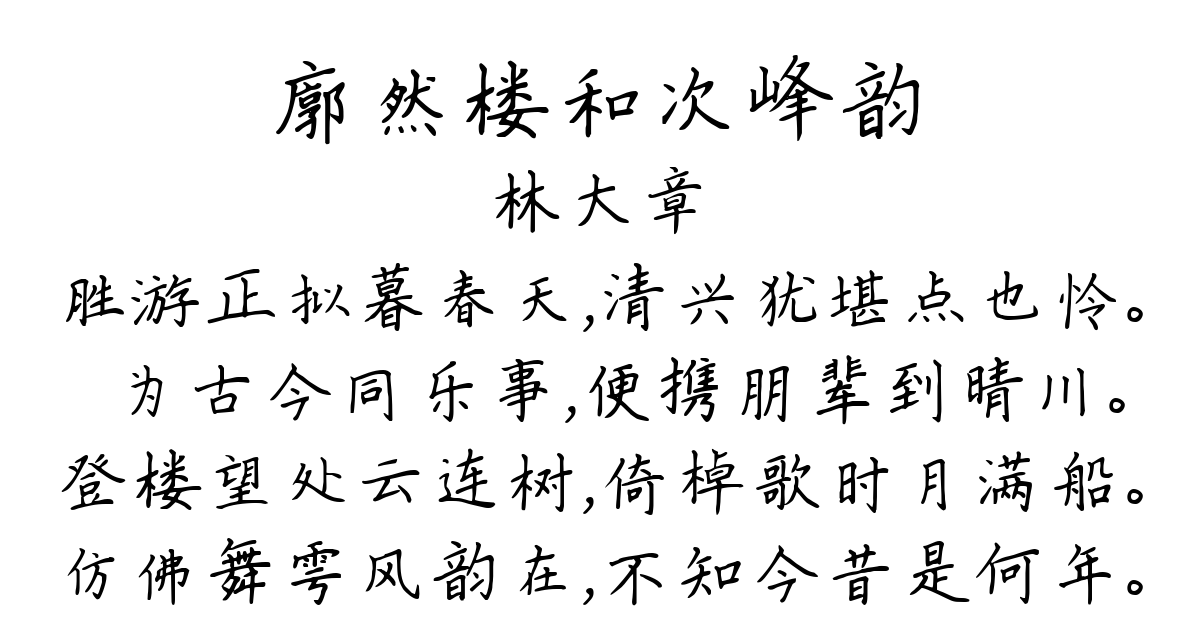 廓然楼和次峰韵
林大章
胜游正拟暮春天,清兴犹堪点也怜。
为古今同乐事,便携朋辈到晴川。
登楼望处云连树,倚棹歌时月满船。
仿佛舞雩风韵在,不知今昔是何年。